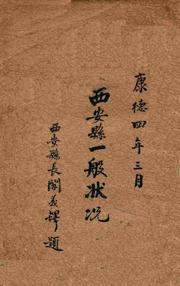 康德四年三月
西安縣一般狀況
西安縣長閻義鐸題